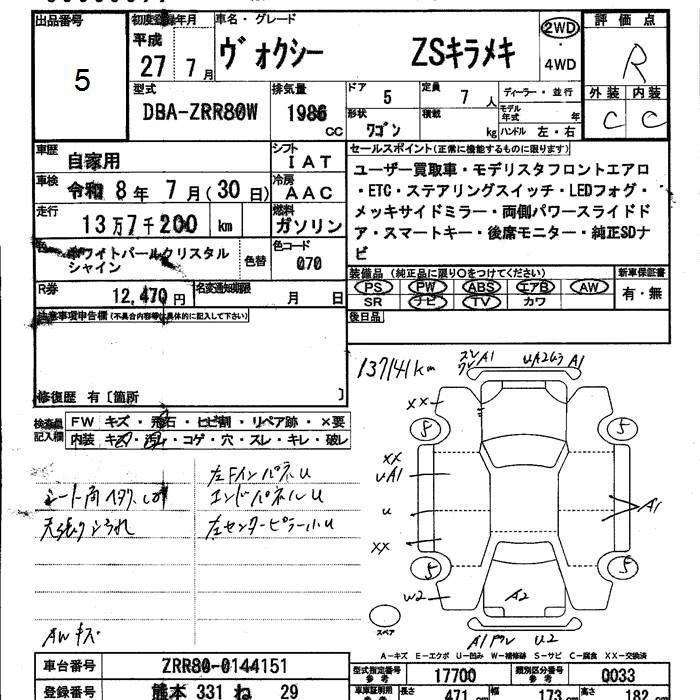 出品番号
5
初度登録年月
平成
27 7月
車名・グレード
ヴォクシー ZSキラメキ
2WD
・
4WD
評価点
R
外装 内装
C C
型式
DBA-ZRR80W
排気量
1986 cc
ドア
5
定員
7 人
ディーラー・並行
形状
ワゴン
積載
kg
モデル年式 年
ハンドル 左・右
車歴
自家用
シフト
IAT
車検
令和 8年 7月(30日)
冷房
AAC
走行
13万7千200 km
燃料
ガソリン
色
ホワイトパールクリスタル
シャイン
色替
色コード
070
R券
12,470円
名変通知期限
月 日
セールスポイント(正常に機能するものに限ります)
ユーザー買取車・モデリスタフロントエアロ
・ETC・ステアリングスイッチ・LEDフォグ・
メッキサイドミラー・両側パワースライドド
ア・スマートキー・後席モニター・純正SDナ
ビ
装備品(純正品に限り○をつけてください)
PS PW ABS エアB AW
SR ナビ TV カワ
新車保証書
有・無
後日品
注意事項申告欄(不具合内容等は具体的に記入して下さい)
修復歴 有〔箇所 〕
検査員記入欄
FW キズ・飛石・ヒビ割・リペア跡・×要
内装 キズ・汚レ・コゲ・穴・スレ・キレ・破レ
左Fインパネu
エンドパネルu
左センターピラー小u
AWキズ
137141km
A1 uA2 A1
XX
8 5
XX
uA1
u
A1
XX
5 5
W2
A2
スペア
A1 U2
A-キズ E-エクボ U-凹み W-補修跡 S-サビ C-腐食 XX-交換済
車台番号
ZRR80-0144151
登録番号
熊本 331 ね 29
型式指定番号
参考
17700
類別区分番号
参考
0033
車庫証明用
参考
長さ 471 cm 幅 173 cm 高さ 182 cm